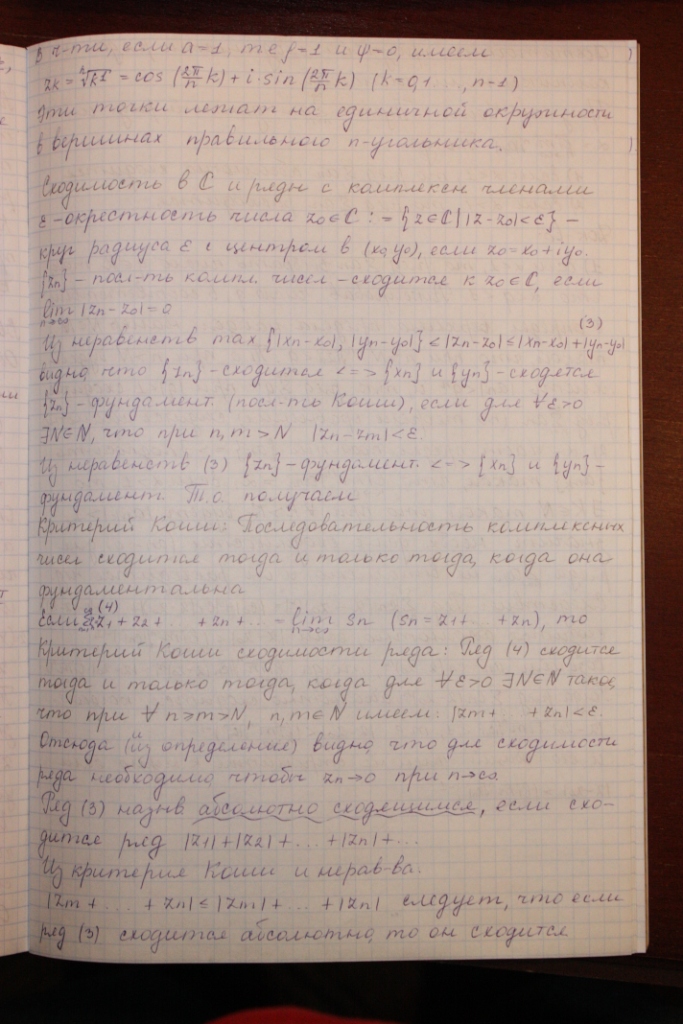 В ч-ти, если a=1, т е ρ=1 и φ=0, имеем
zk = ⁿ√1 = cos (2π/n k) + i·sin (2π/n k) (k=0,1 ..., n-1)
Эти точки лежат на единичной окружности
в вершинах правильного n-угольника.
Сходимость в ℂ и ряды с комплексн членами
ε -окрестность числа z₀∈ℂ : = {z∈ℂ | |z-z₀|<ε} -
круг радиуса ε с центром в (x₀,y₀), если z₀=x₀+iy₀.
{zn} - посл-ть компл. чисел - сходится к z₀∈ℂ, если
lim n→∞ |zn-z₀|=0
(3)
Из неравенств max {|xn-x₀|, |yn-y₀|} ≤ |zn-z₀| ≤ |xn-x₀|+|yn-y₀|
видно, что {zn} - сходится <=> {xn} и {yn} - сходятся
{zn} - фундамент. (посл-ть Коши), если для ∀ε>0
∃N∈ℕ, что при n,m>N |zn-zm|<ε.
Из неравенств (3) {zn} - фундамент. <=> {xn} и {yn} -
фундамент. Т.о получаем
Критерий Коши: Последовательность комплексных
чисел сходится тогда и только тогда, когда она
фундаментальна
Если (4) z₁ + z₂ + ... + zn + ... = lim n→∞ Sn (Sn = z₁+ ... + zn), то
Критерий Коши сходимости ряда: Ряд (4) сходится
тогда и только тогда, когда для ∀ε>0 ∃N∈ℕ такое,
что при ∀ n>m>N, n,m∈ℕ имеем: |zm+ ... +zn|<ε.
Отсюда (из определение) видно, что для сходимости
ряда необходимо, чтобы zn→0 при n→∞
Ряд (3) назыв абсолютно сходящимся, если схо-
дится ряд |z₁|+|z₂|+ ... +|zn|+ ...
Из критерия Коши и нерав-ва.
|zm + ... + zn| ≤ |zm|+ ... +|zn| следует, что если
ряд (3) сходится абсолютно, то он сходится